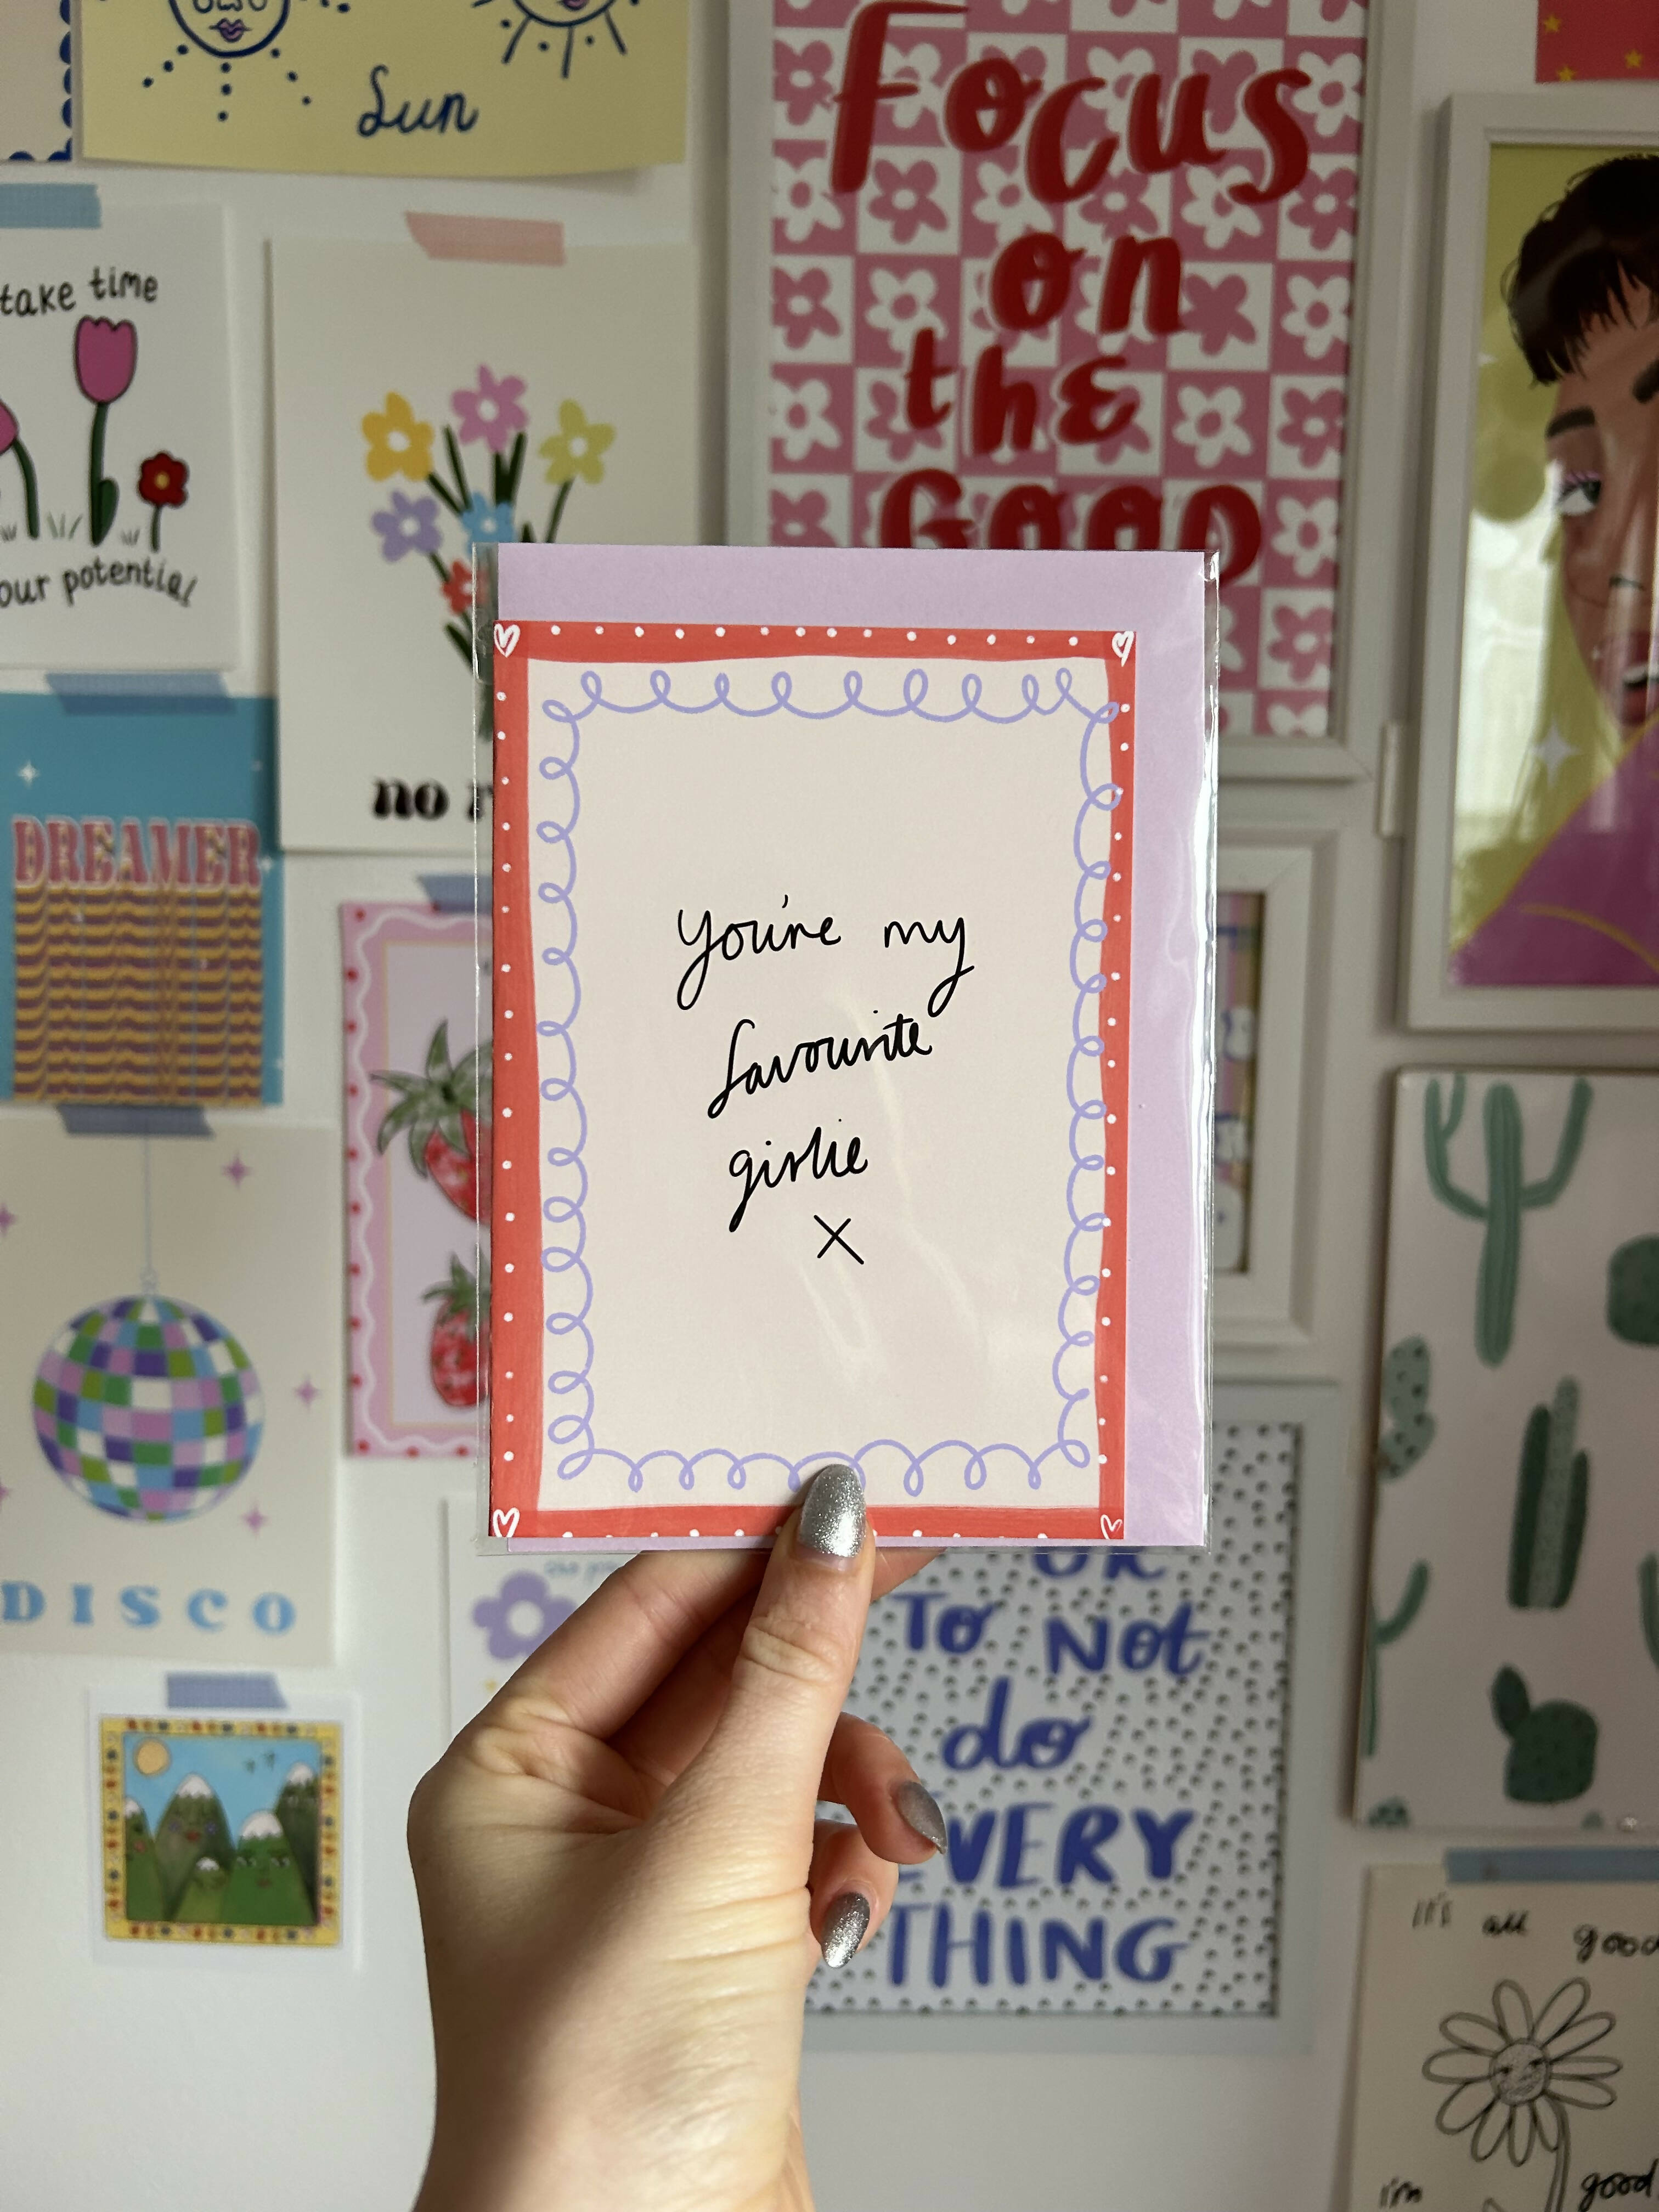 Sun
Focus
on
the
GOOD
take time
our potential
no
DREAMER
You're my
favourite
girlie
X
DISCO
OK
To Not
do
EVERY
THING
It's all good
i'm good